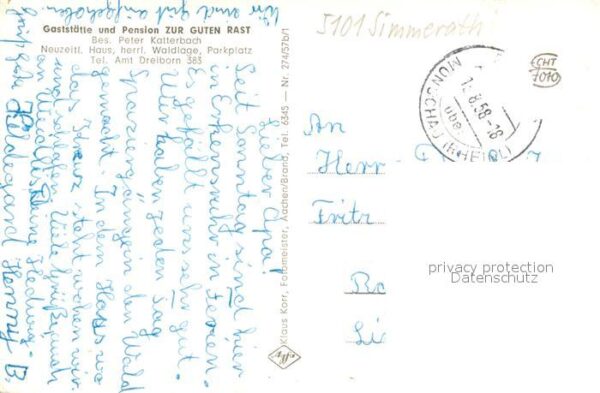 wir sind gut aufgehoben.
Gaststätte und Pension ZUR GUTEN RAST
Bes. Peter Katterbach
Neuzeitl. Haus, herrl. Waldlage, Parkplatz
Tel. Amt Dreiborn 383
5101 Simmerath
ECHT
1010
MONSCHAU
über
(RHEINL)
.8.58-18
Lieber Opa!
Seit Sonntag sind wir
in Erkensruhr in Ferien.
Es gefällt uns sehr gut.
Wir haben jeden Tag
Spaziergänge in den Wald
gemacht. In dem Haus wo
das Kreuz steht wohnen wir
und schlafen. Viele Grüße auch
an
Hedwig
Hildegard Henny B.
Klaus Korr, Fotomeister, Aachen/Brand, Tel. 6345 — Nr. 274/57b/1
Agfa
An
Herr
Fritz
privacy protection
Datenschutz